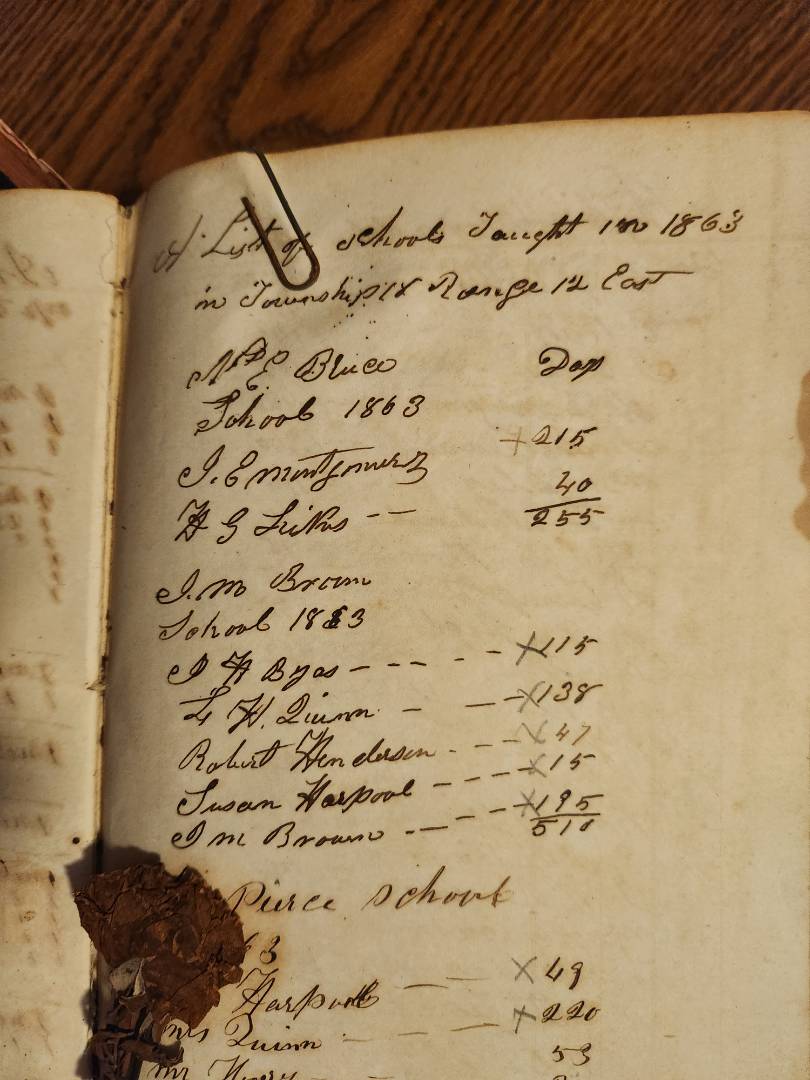 A List of schools Taught in 1863
in Township 18 Range 12 East
Bruce Days
School 1863
J. E Montgomery +215
H G Likes -- 40
255
J. M Brown
School 1863
J H Byas - - - - - X115
L H. Quinn - - X138
Robert Henderson - - - X47
Susan Harpool - - - - X15
J M Brown - - - - X195
510
Pierce school
63
Harpool - - X 49
Mrs Quinn - - - + 220
Mr Henry - - 53